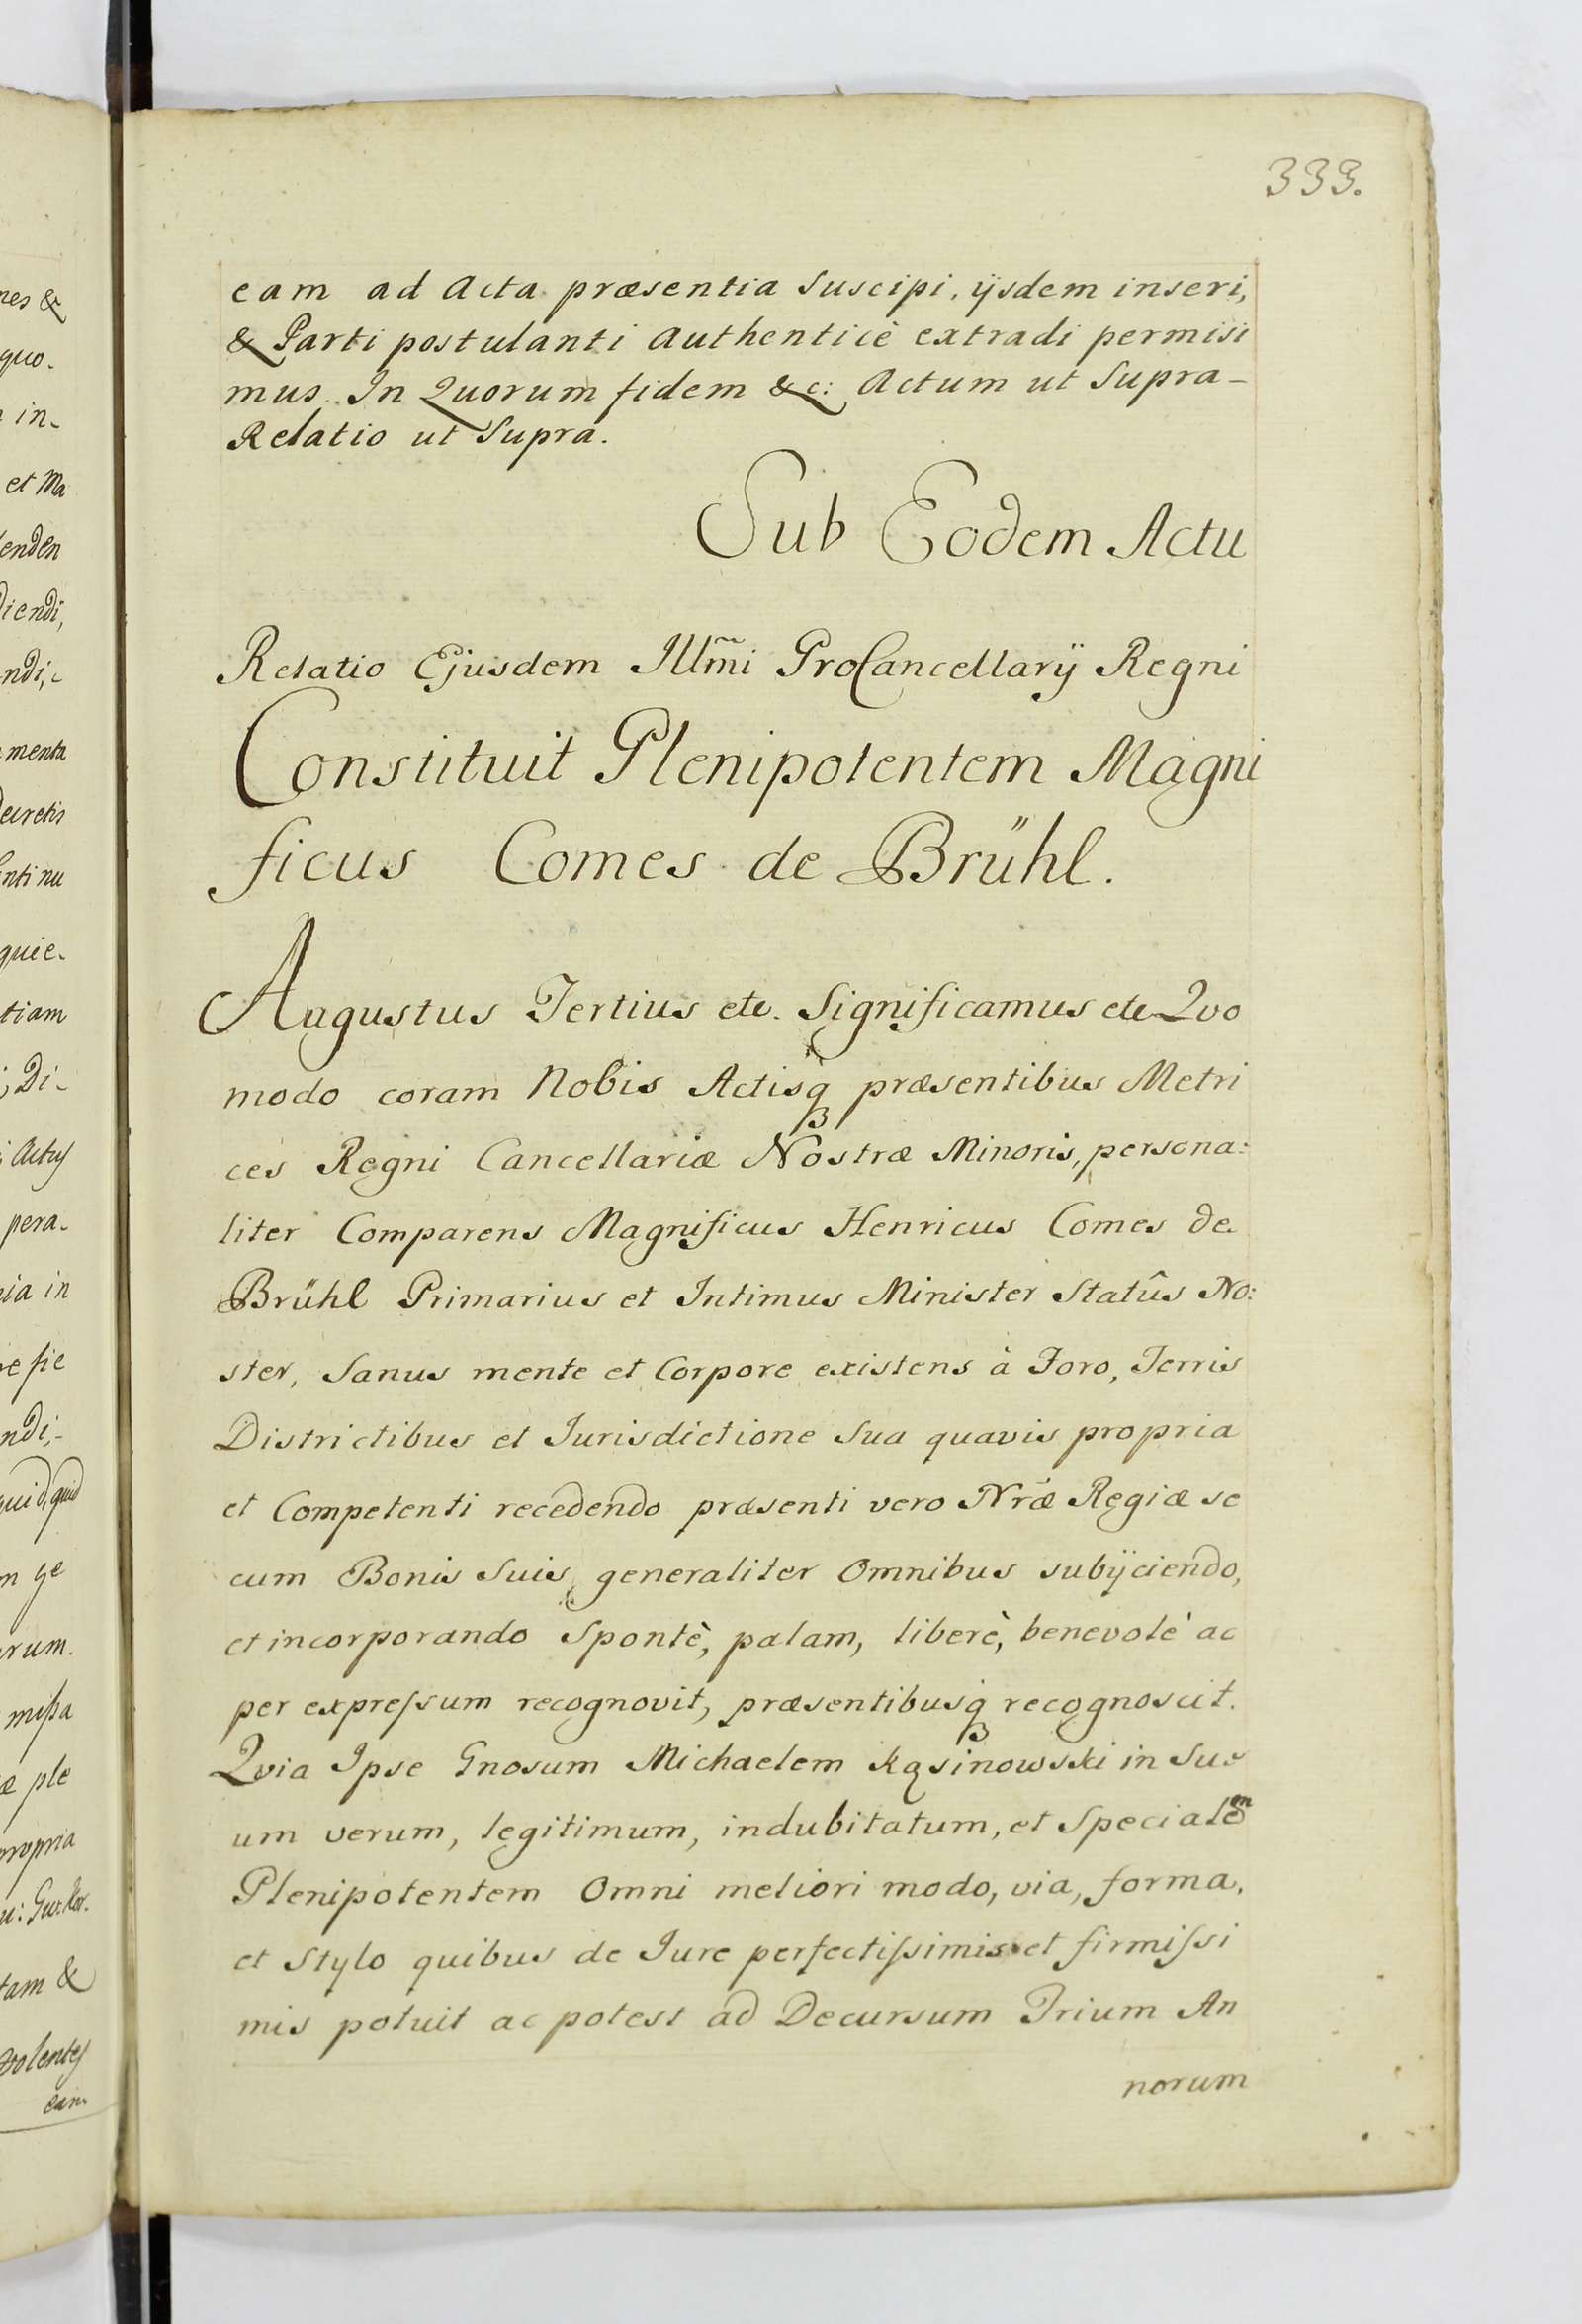 333.
eam ad Acta præsentia Suscipi, ijsdem inseri,
& Parti postulanti Authenticè extradi permisi
mus. In Quorum fidem &c: Actum ut Supra-
Relatio ut Supra.
Sub Eodem Actu
Relatio Ejusdem Illm̃i ProCancellarij Regni
Constituit Plenipotentem Magni
ficus Comes de Brühl.
Augustus Tertius etc. Significamus etc Quo
modo coram Nobis Actisq præsentibus Metri
ces Regni Cancellariæ Nostræ Minoris, persona:
liter Comparens Magnificus Henricus Comes de
Brühl Primarius et Intimus Minister Statûs No:
ster, Sanus mente et Corpore existens à Foro, Terris
Districtibus et Jurisdictione Sua quavis propria
et Competenti recedendo præsenti vero Nræ Regiæ se
cum Bonis Suis generaliter Omnibus subijciendo,
et incorporando Spontè, palam, liberè, benevolè ac
per expreſsum recognovit, præsentibusq recognoscit.
Quia Ipse Gnosum Michaelem Kąsinowski in Su-
um verum, legitimum, indubitatum, et Specialem
Plenipotentem Omni meliori modo, via, forma,
et Stylo quibus de Jure perfectiſsimis et firmiſsi
mis potuit ac potest ad Decursum Trium An
norum
nes &
quo-
in-
et Ma
enden
diendi,
ndi,-
menta
quie-
tiam
; Di-
pera-
ia in
ndi,-
rum.
æ ple
propria
tam &
volentes
eam